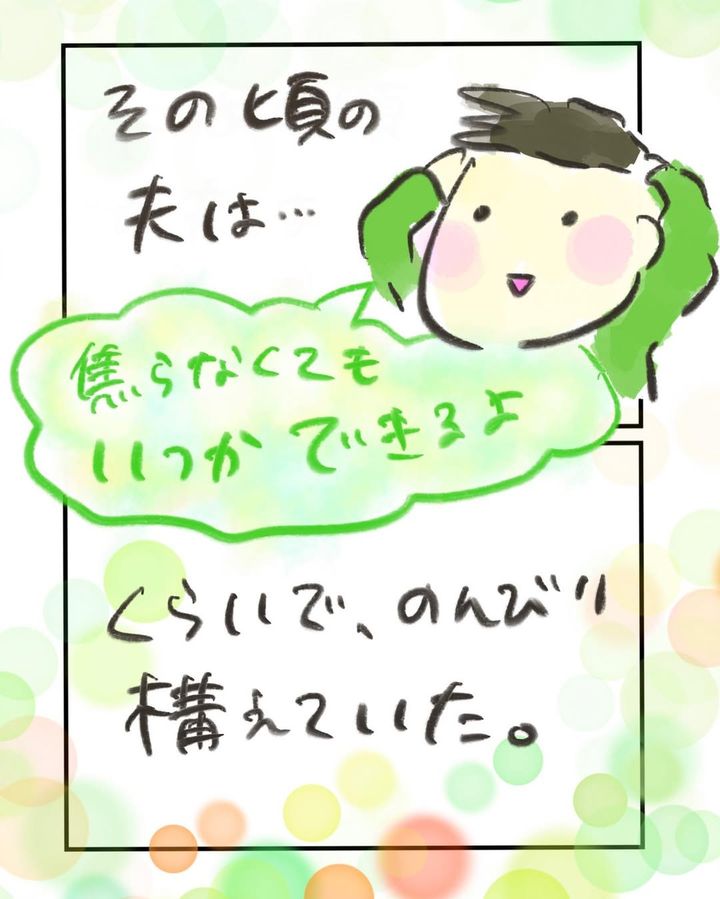 その頃の
夫は…
焦らなくても
いつかできるよ
くらいで、のんびり
構えていた。